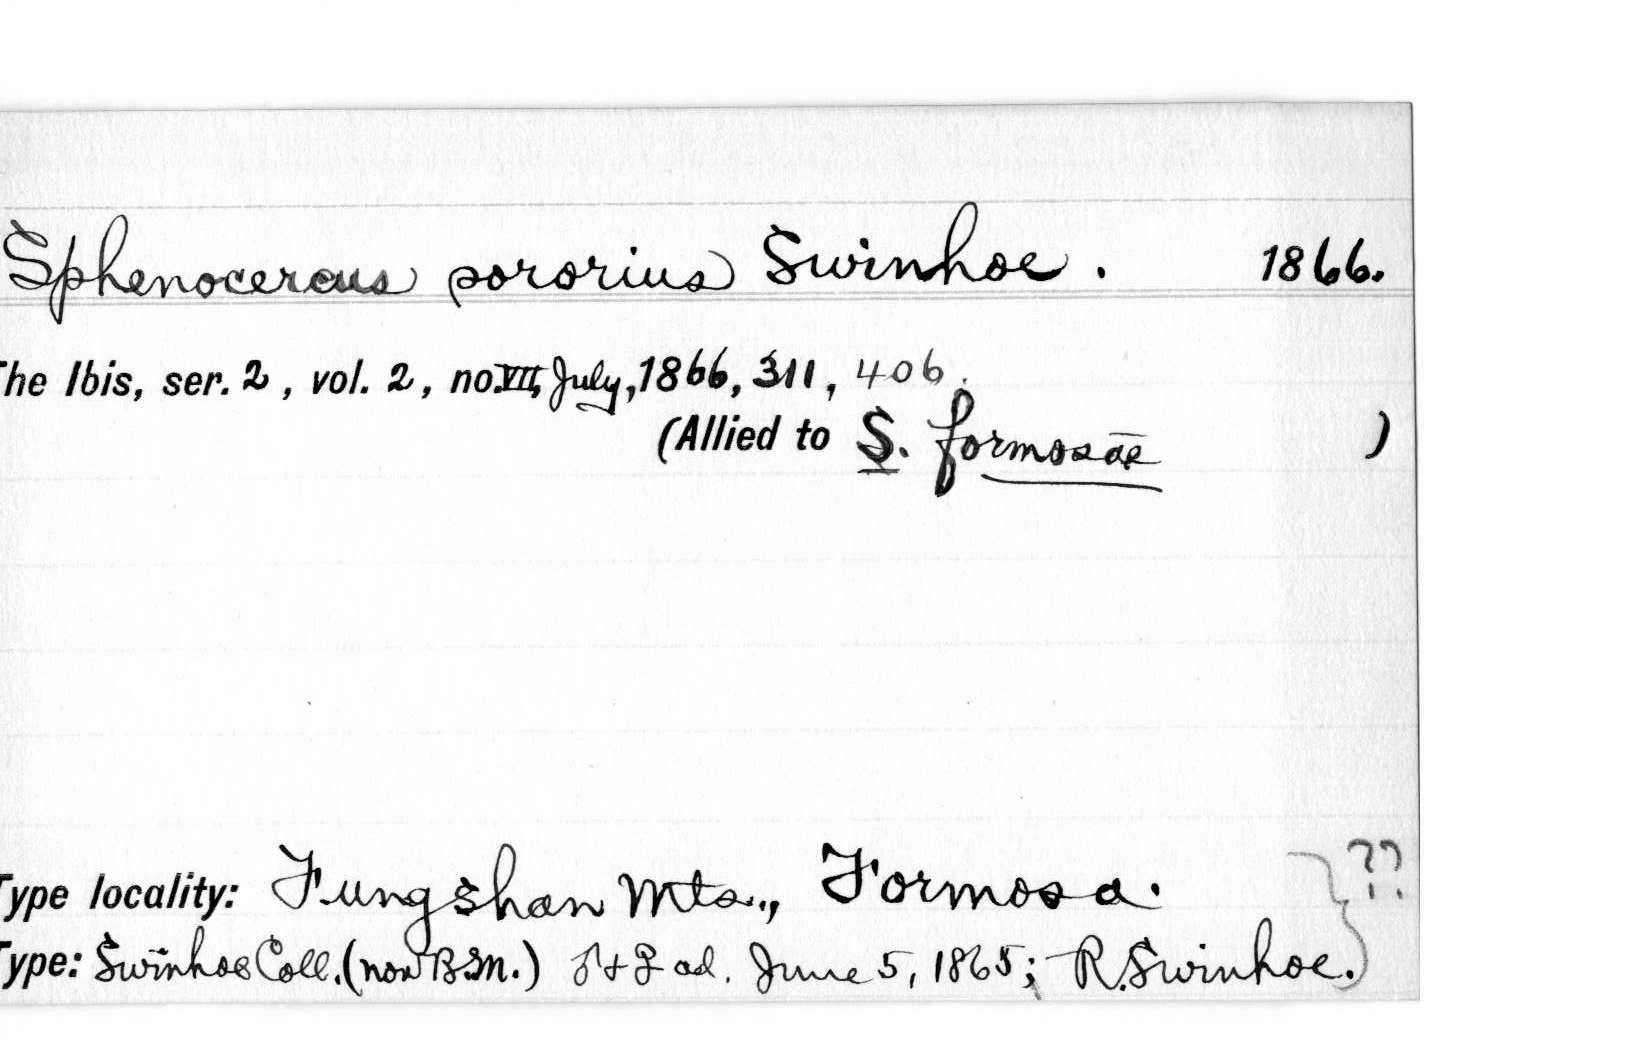 Sphenocercus sororius Swinhoe. 1866.
The Ibis, ser. 2, vol. 2, no. VII, July, 1866, 311, 406.
(Allied to S. formosae )
Type locality: Fungshan Mts., Formosa. } ??
Type: Swinhoe Coll. (now B.M.) ♂ + ♀ ad. June 5, 1865; R. Swinhoe.